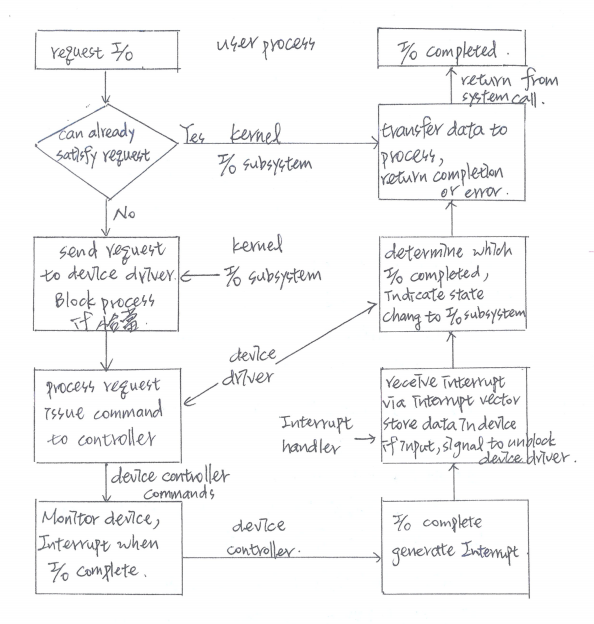 request I/O
user process
I/O completed.
return from
system call.
can already
satisfy request
Yes
kernel
I/O subsystem
transfer data to
process,
return completion
or error.
No
send request
to device driver.
Block process
if 恰當.
kernel
I/O subsystem
determine which
I/O completed,
indicate state
chang to I/O subsystem
device
driver
process request
issue command
to controller
Interrupt
handler
receive interrupt
via interrupt vector
store data in device
if input, signal to unblock
device driver.
device controller
commands
Monitor device,
Interrupt when
I/O complete.
device
controller.
I/O complete
generate Interrupt.